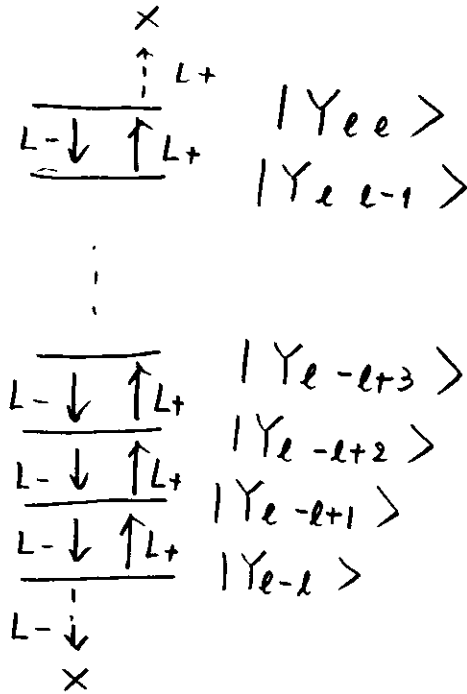 ×
L+
L- L+ | Y ℓ ℓ >
| Y ℓ ℓ-1 >
L- L+ | Y ℓ -ℓ+3 >
L- L+ | Y ℓ -ℓ+2 >
L- L+ | Y ℓ -ℓ+1 >
| Y ℓ-ℓ >
L-
×